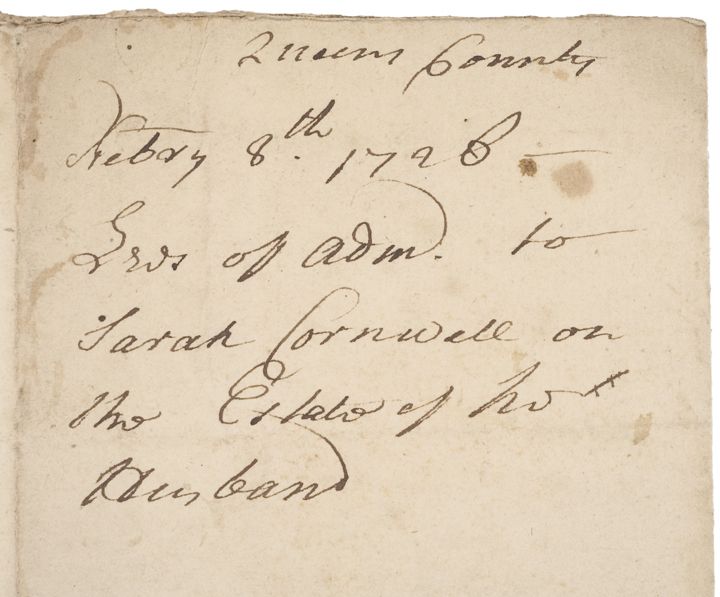 Queens County
Febry 8th. 1726 —
Lres of adm. to
Sarah Cornwell on
the Estate of her
Husband